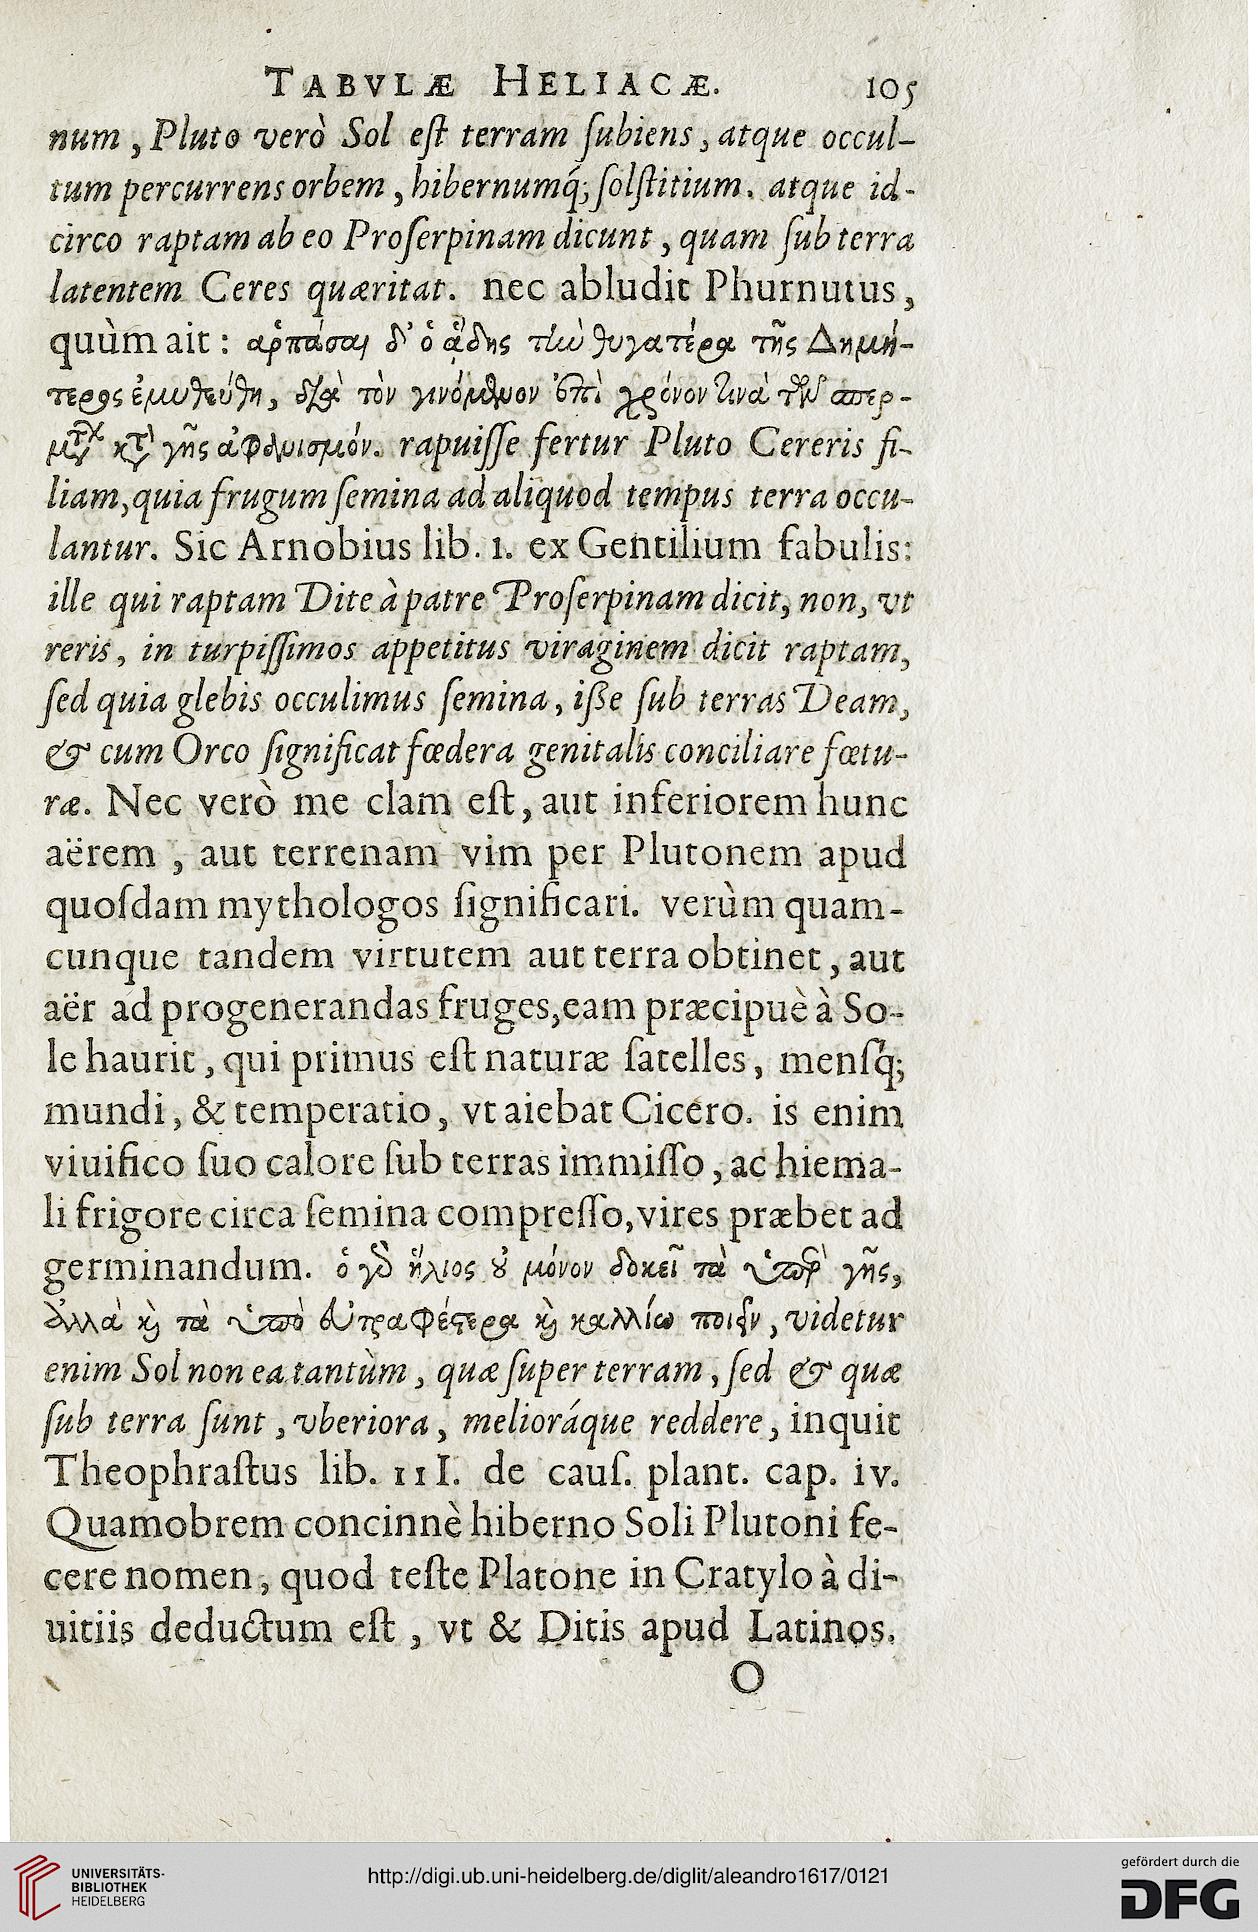 TABVLÆ HELIACÆ. 105
num, Pluto verò Sol eſt terram ſubiens, atque occul-
tum percurrens orbem, hibernumq́; ſolſtitium. atque id-
circo raptam ab eo Proſerpinam dicunt, quam ſub terra
latentem Ceres quæritat. nec abludit Phurnutus,
quùm ait: ἁρπάσαι δ' ὁ ᾅδης τὴν θυγατέρα τῆς Δημή-
τερος ἐμυθεύθη, διὰ τὸν γινόμενον ἐπὶ χρόνον τινὰ τῶν σπερ-
μάτων κατὰ γῆς ἀφανισμόν. rapuiſſe fertur Pluto Cereris fi-
liam, quia frugum ſemina ad aliquod tempus terra occu-
lantur. Sic Arnobius lib. 1. ex Gentilium fabulis:
ille qui raptam Dite à patre Proſerpinam dicit, non, vt
reris, in turpiſſimos appetitus viraginem dicit raptam,
ſed quia glebis occulimus ſemina, iſſe ſub terras Deam,
& cum Orco ſignificat fœdera genitalis conciliare fœtu-
ræ. Nec verò me clam eſt, aut inferiorem hunc
aërem, aut terrenam vim per Plutonem apud
quoſdam mythologos ſignificari. verùm quam-
cunque tandem virtutem aut terra obtinet, aut
aër ad progenerandas fruges, eam præcipuè à So-
le haurit, qui primus eſt naturæ ſatelles, menſq́;
mundi, & temperatio, vt aiebat Cicero. is enim
viuifico ſuo calore ſub terras immiſſo, ac hiema-
li frigore circa ſemina compreſſo, vires præbet ad
germinandum. ὁ γὰρ ἥλιος οὐ μόνον δοκεῖ τὰ ὑπὲρ γῆς,
ἀλλὰ καὶ τὰ ὑπὸ εὐτραφέστερα καὶ καλλίω ποιεῖν, videtur
enim Sol non ea tantùm, quæ ſuper terram, ſed & quæ
ſub terra ſunt, vberiora, melioráque reddere, inquit
Theophraſtus lib. III. de cauſ. plant. cap. iv.
Quamobrem concinnè hiberno Soli Plutoni fe-
cere nomen, quod teſte Platone in Cratylo à di-
uitiis deductum eſt, vt & Ditis apud Latinos.
O
UNIVERSITÄTS-
BIBLIOTHEK
HEIDELBERG
http://digi.ub.uni-heidelberg.de/diglit/aleandro1617/0121
gefördert durch die
DFG